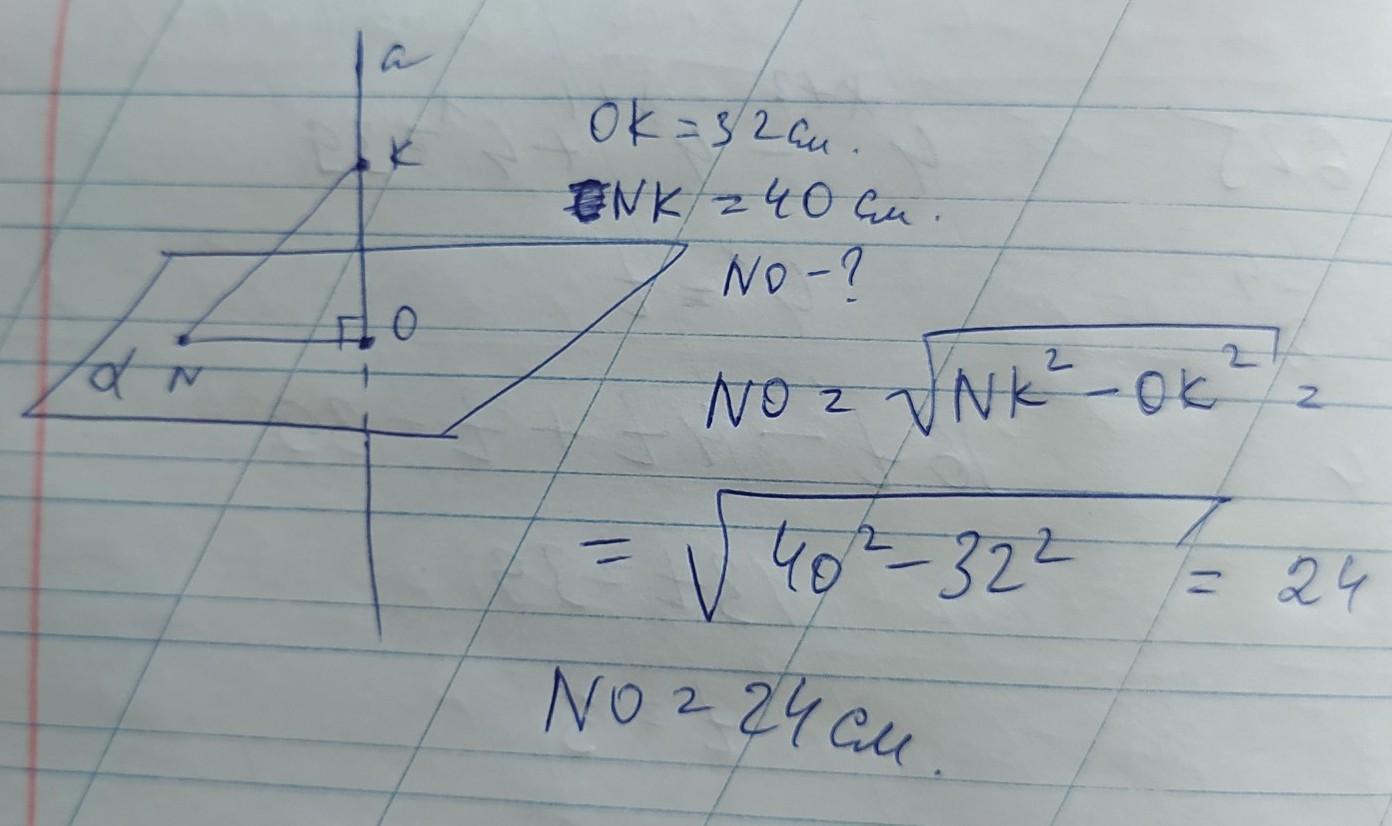 a
K
O
α N
OK = 32 см.
NK = 40 см.
NO - ?
NO = √NK² - OK² =
= √40² - 32² = 24
NO = 24 см.